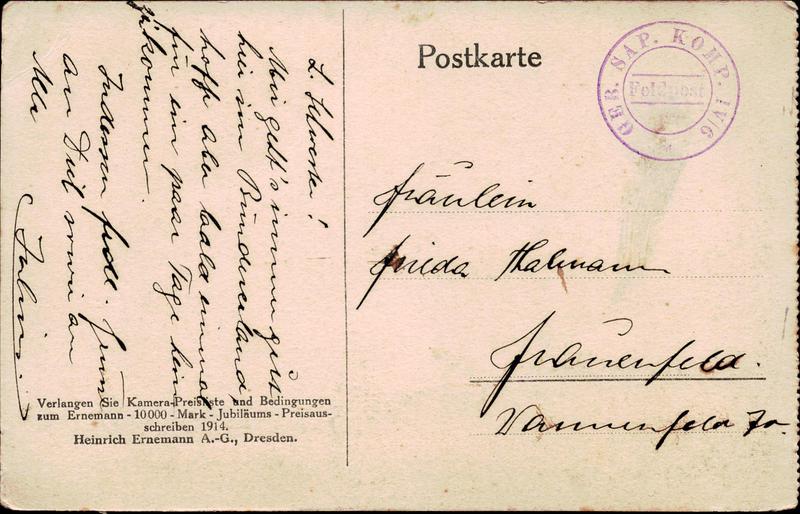 L. Schwester!
Mir geht's immer gut
hier im Bündnerland
hoffe aber bald einmal
für ein paar Tage heim
zukommen.
Indessen frdl. Gruss
an Dich sowie an
Alle
Julius.
Verlangen Sie Kamera-Preisliste und Bedingungen
zum Ernemann-10000-Mark-Jubiläums-Preisaus-
schreiben 1914.
Heinrich Ernemann A.-G., Dresden.
Postkarte
GEB. SAP. KOMP. IV/6
Feldpost
Fräulein
Frieda Thalmann
Frauenfeld.